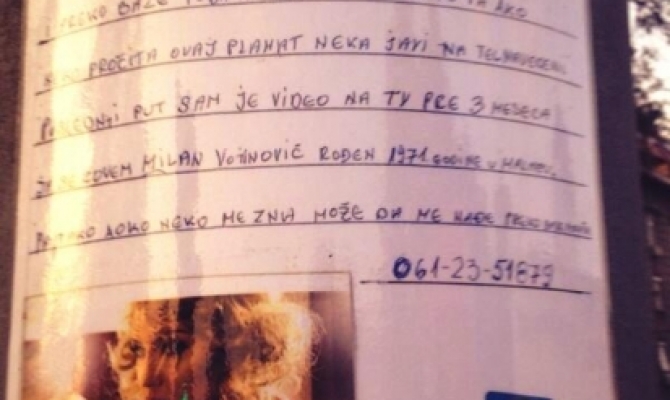 I PREKO BAZE
PROČITA OVAJ PLAKAT NEKA JAVI NA TEL NAVEDENI
POSLEDNJI PUT SAM JE VIDEO NA TV PRE 3 MESECA
JA SE ZOVEM MILAN VOJINOVIĆ ROĐEN 1971 GODINE U
PA TAKO AKO NEKO ME ZNA MOŽE DA ME NAĐE PREKO
061-23-51679